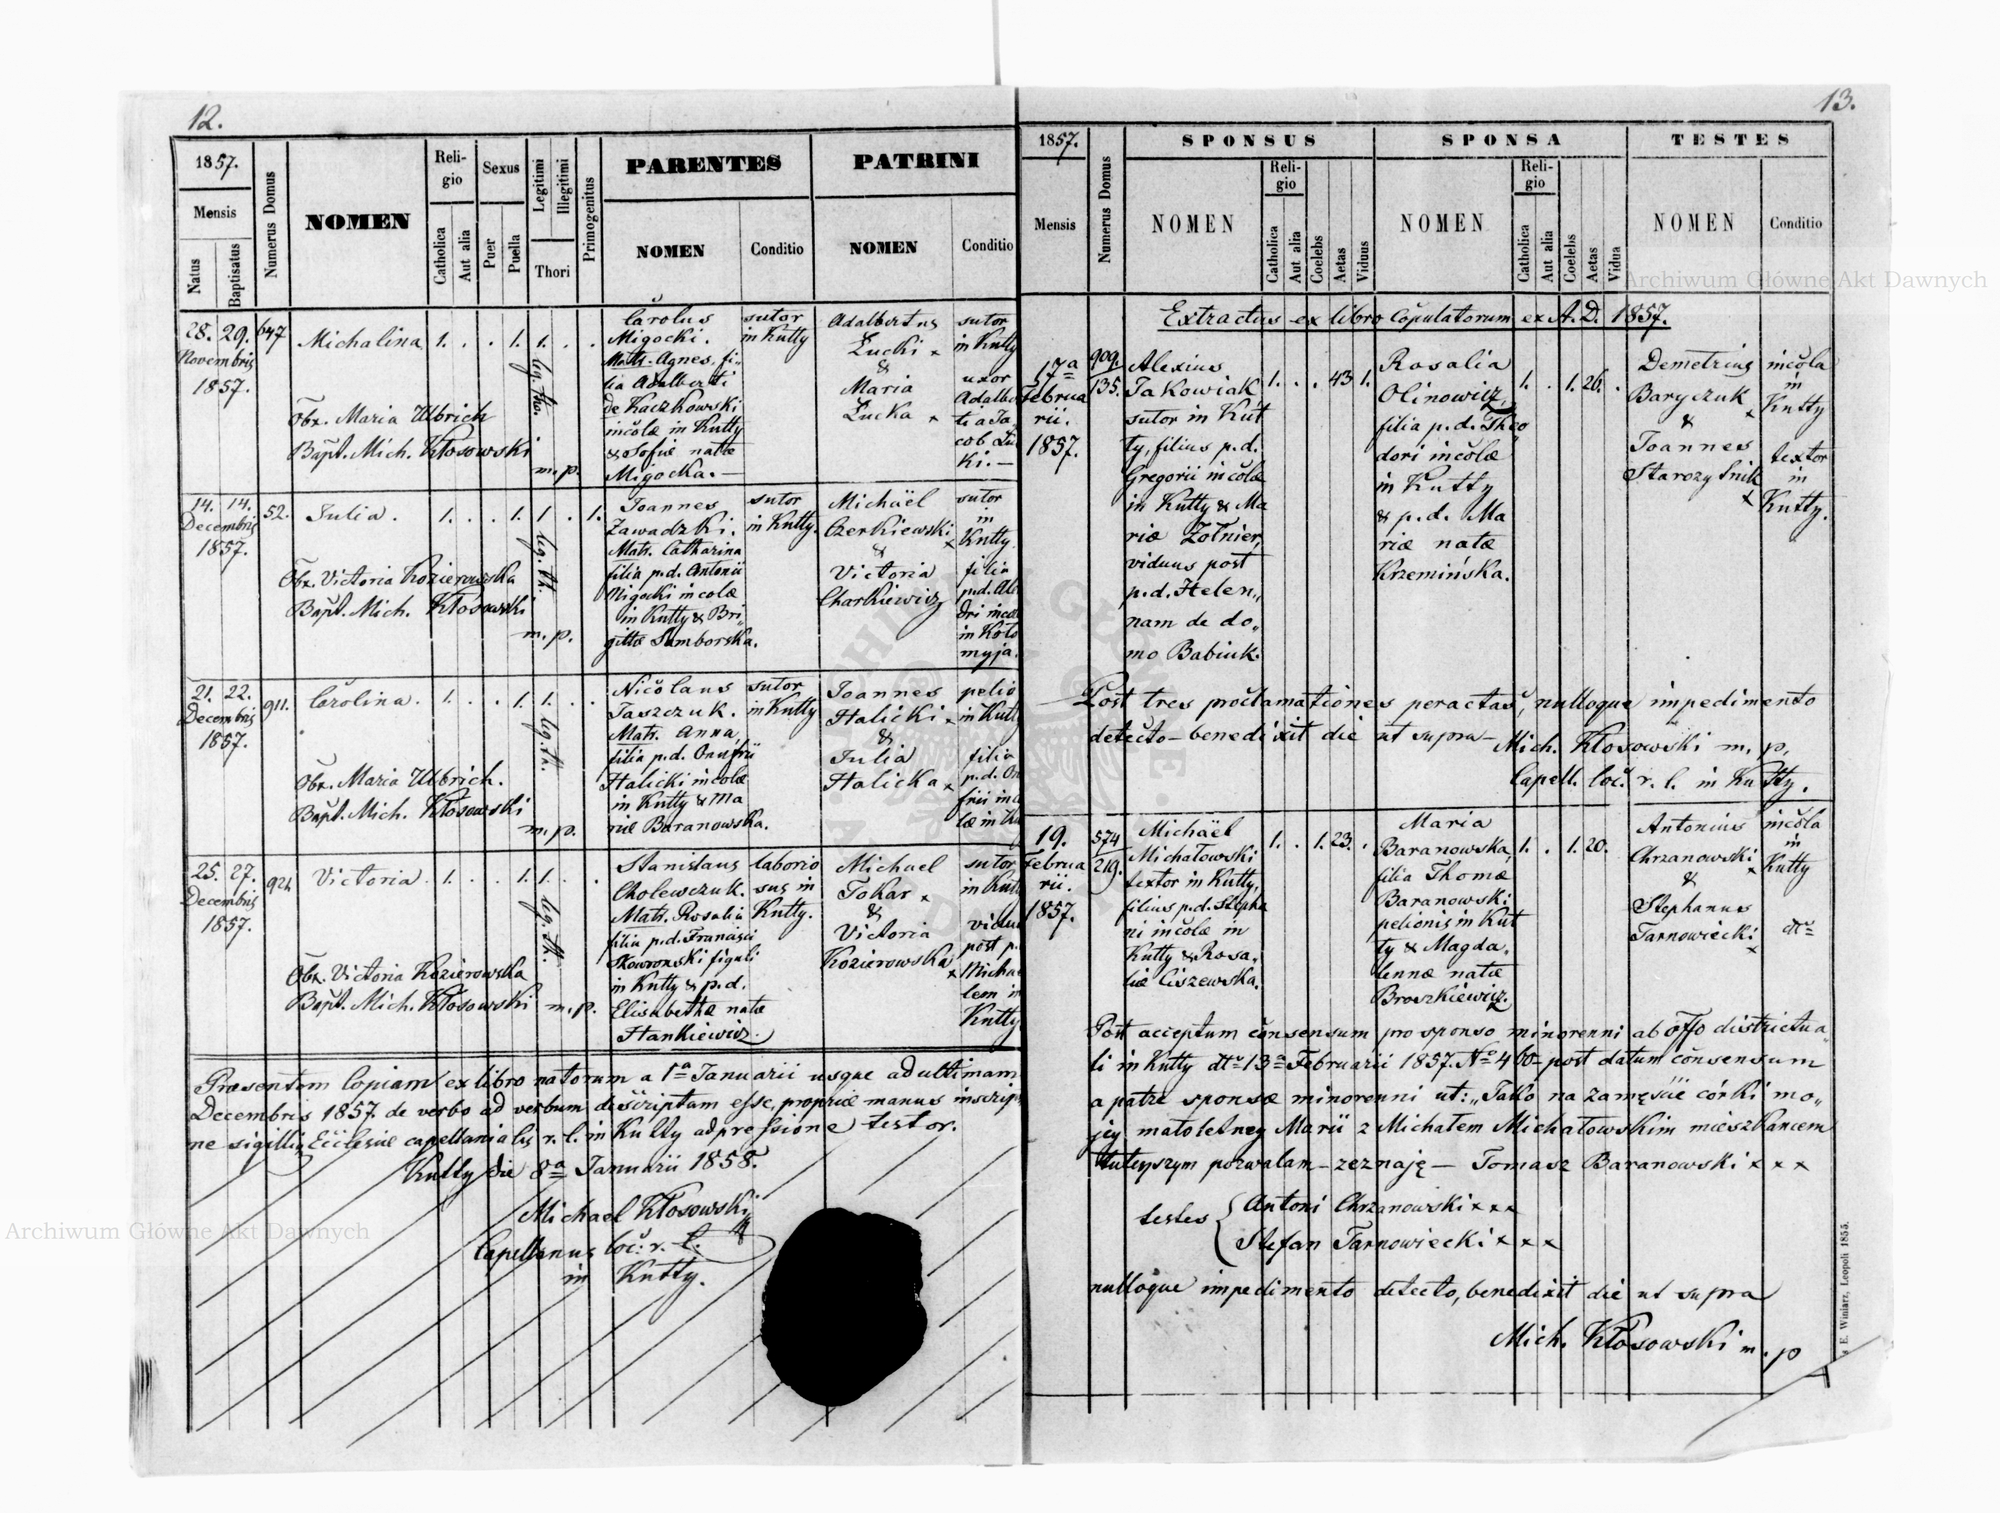 12.
1857.
Mensis
Natus
Baptisatus
Numerus Domus
NOMEN
Religio
Catholica
Aut alia
Sexus
Puer
Puella
Legitimi
Illegitimi
Thori
Primogenitus
PARENTES
NOMEN
Conditio
PATRINI
NOMEN
Conditio
28. 29. 647
Novembris
1857.
Michalina 1. . . 1. 1. . .
leg. tho.
Obx. Maria Ulbrich
Bapt. Mich. Kłosowski
m. p.
Carolus
Migocki.
Matr. Agnes, fi-
lia Adalberti
de Kaczkowski
incolæ in Kutty
& Sofiæ natæ
Migocka.—
sutor
in Kutty
Adalbertus
Łucki x
&
Maria
Łucka x
sutor
in Kutty
uxor
Adalber
ti a Ja
cob Łu
ki.—
14. 14. 52.
Decembris
1857.
Julia. 1. . . 1. 1 . 1.
leg. th.
Obx. Victoria Kozierowska
Bapt. Mich. Kłosowski
m. p.
Joannes
Zawadzki.
Matr. Catharina
filia p.d. Antonii
Migocki incolæ
in Kutty & Bri„
gittæ Samborska.
sutor
in Kutty.
Michäel
Czerkiewski x
&
Victoria
Charkiewicz
sutor
in
Kutty.
filia
p.d. Ale
dri incol
in Koło
myja.
21. 22. 911.
Decembris
1857.
Carolina. 1. . . 1. 1. . .
leg. th.
Obx. Maria Ulbrich.
Bapt. Mich. Kłosowski
m. p.
Nicolaus
Jaszczuk.
Matr. Anna,
filia p.d. Onufrii
Halicki incolæ
in Kutty & Ma
riæ Baranowska.
sutor
in Kutty
Joannes
Halicki x
&
Julia
Halicka x
pelio
in Kutty
filia
p.d. On
frii inco
læ in Ku
25. 27. 924
Decembris
1857.
Victoria. 1. . . 1. 1. . .
leg. th.
Obx. Victoria Kozierowska
Bapt. Mich. Kłosowski
m. p.
Stanislaus
Cholewczuk.
Matr. Rosalia
filia p.d. Francisci
Skowronski figuli
in Kutty & p.d.
Elisabethæ natæ
Hankiewicz
laborio
sus in
Kutty.
Michael
Tokar x
&
Victoria
Kozierowska x
sutor
in Kutty
vidua
post p.
Micha
lem in
Kutty
Præsentem Copiam ex libro natorum a 1ª Januarii usque ad ultimam
Decembris 1857 de verbo ad verbum descriptam esse, propriæ manus inscriptio
ne sigillique Ecclesiæ capellanialis r. l. in Kutty adpressione testor.
Kutty die 8ª Januarii 1858.
Michael Kłosowski
Capellanus loc: r. l:
in Kutty.
13.
1857.
Mensis
Numerus Domus
SPONSUS
NOMEN
Religio
Catholica
Aut alia
Coelebs
Aetas
Viduus
SPONSA
NOMEN
Religio
Catholica
Aut alia
Coelebs
Aetas
Vidua
TESTES
NOMEN
Conditio
Extractus ex libro Copulatorum ex A.D. 1857.
17ª
Februa
rii.
1857.
909.
135.
Alexius
Jakowiak
sutor in Kut
ty, filius p.d.
Gregorii incolæ
in Kutty & Ma
riæ Żołnier,
viduus post
p.d. Helen„
nam de do„
mo Babiuk.
1. . . 43 1.
Rosalia
Olinowicz,
filia p.d. Theo
dori incolæ
in Kutty
& p.d. Ma
riæ natæ
Krzemińska.
1. . 1. 26. .
Demetrius
Baryczuk x
&
Joannes
Starozytnik x
incola
in
Kutty
textor
in
Kutty.
Post tres proclamationes peractas, nulloque impedimento
detecto – benedixit die ut supra – Mich. Kłosowski m. p,
Capell. loc. r. l. in Kutty.
19.
Februa
rii.
1857.
574
219.
Michäel
Michałowski
textor in Kutty,
filius p.d. Stepha
ni incolæ in
Kutty & Rosa„
liæ Ciszewska.
1. . 1. 23. .
Maria
Baranowska,
filia Thomæ
Baranowski
pelionis in Kut
ty & Magda„
lennæ natæ
Broszkiewicz.
1. . 1. 20.
Antonius
Chrzanowski x
&
Stephanus
Tarnowiecki x
incola
in
Kutty
dtº
Post acceptum consensum pro sponso minorenni ab offo districtua„
li in Kutty dtº 13ª Februarii 1857. Nº 460 – post datum consensum
a patre sponsæ minorenni ut: „Jako na zamęście córki mo„
jéj małoletney Marii z Michałem Michałowskim mieszkancem
tuteyszym pozwalam – zeznaję – Tomasz Baranowski x x x
testes { Antoni Chrzanowski x x x
Stefan Tarnowiecki x x x
nulloque impedimento detecto, benedixit die ut supra
Mich. Kłosowski m. p
E. Winiarz, Leopoli 1855.
Archiwum Główne Akt Dawnych
Archiwum Główne Akt Dawnych